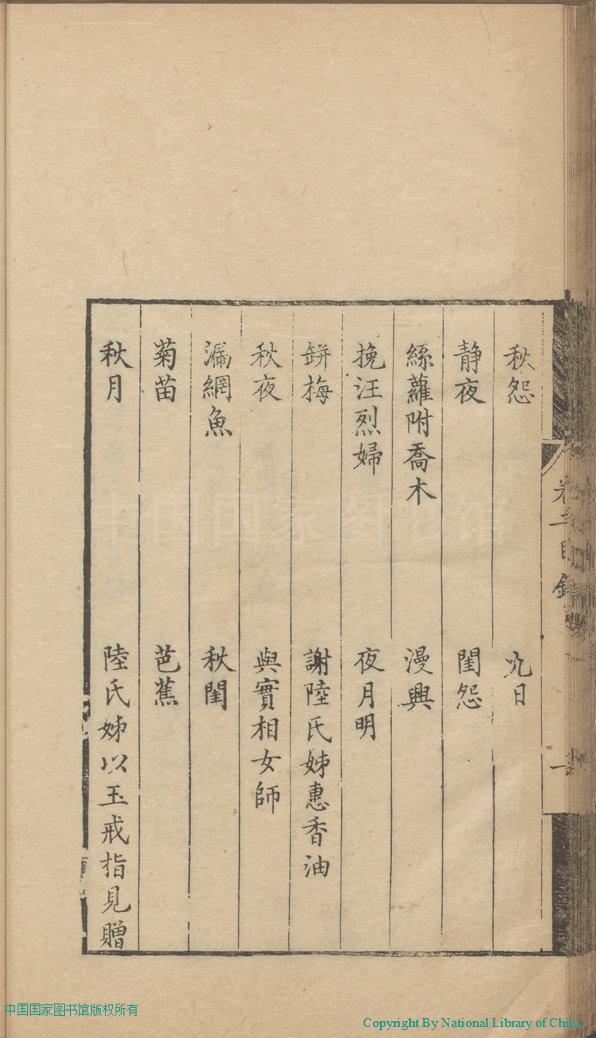 秋怨　九日
静夜　閨怨
絲蘿附喬木　漫興
挽汪烈婦　夜月明
缾梅　謝陸氏姊惠香油
秋夜　與實相女師
漏網魚　秋閨
菊苗　芭蕉
秋月　陸氏姊以玉戒指見贈
目錄
中国国家图书馆版权所有
Copyright By National Library of China